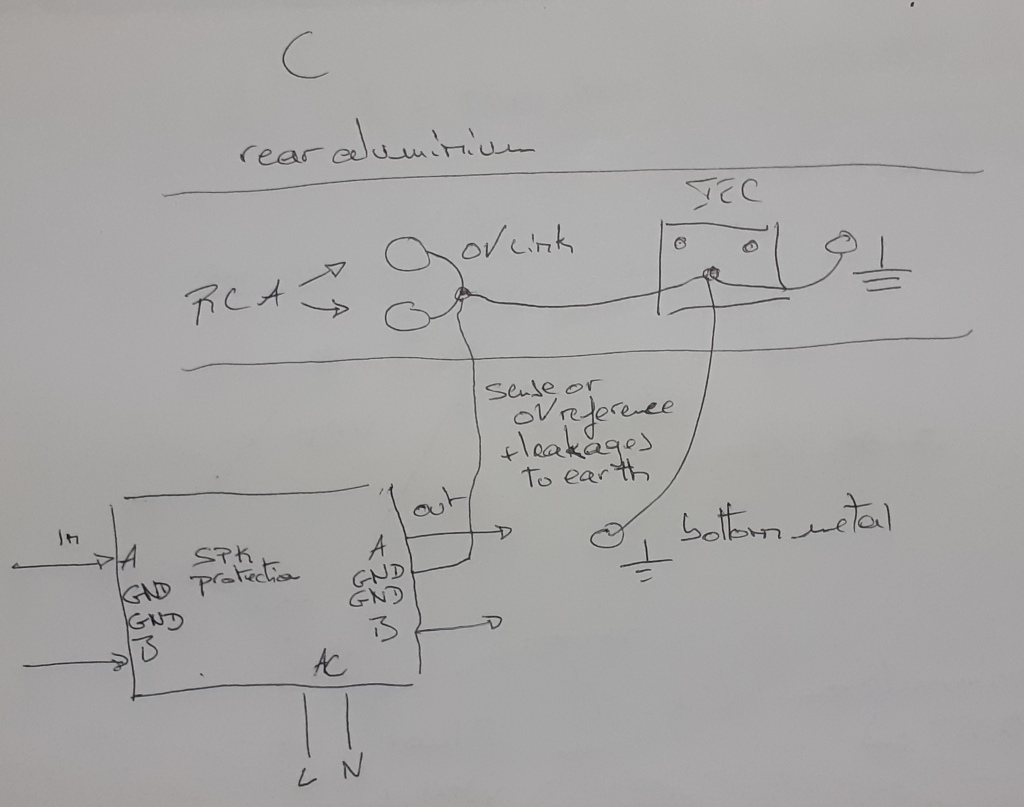 C
rear aluminium
IEC
0V Link
RCA
sense or
0V reference
+ leakages
to earth
out
In
A
SPK
protection
A
GND
GND
GND
GND
B
B
bottom metal
AC
L N